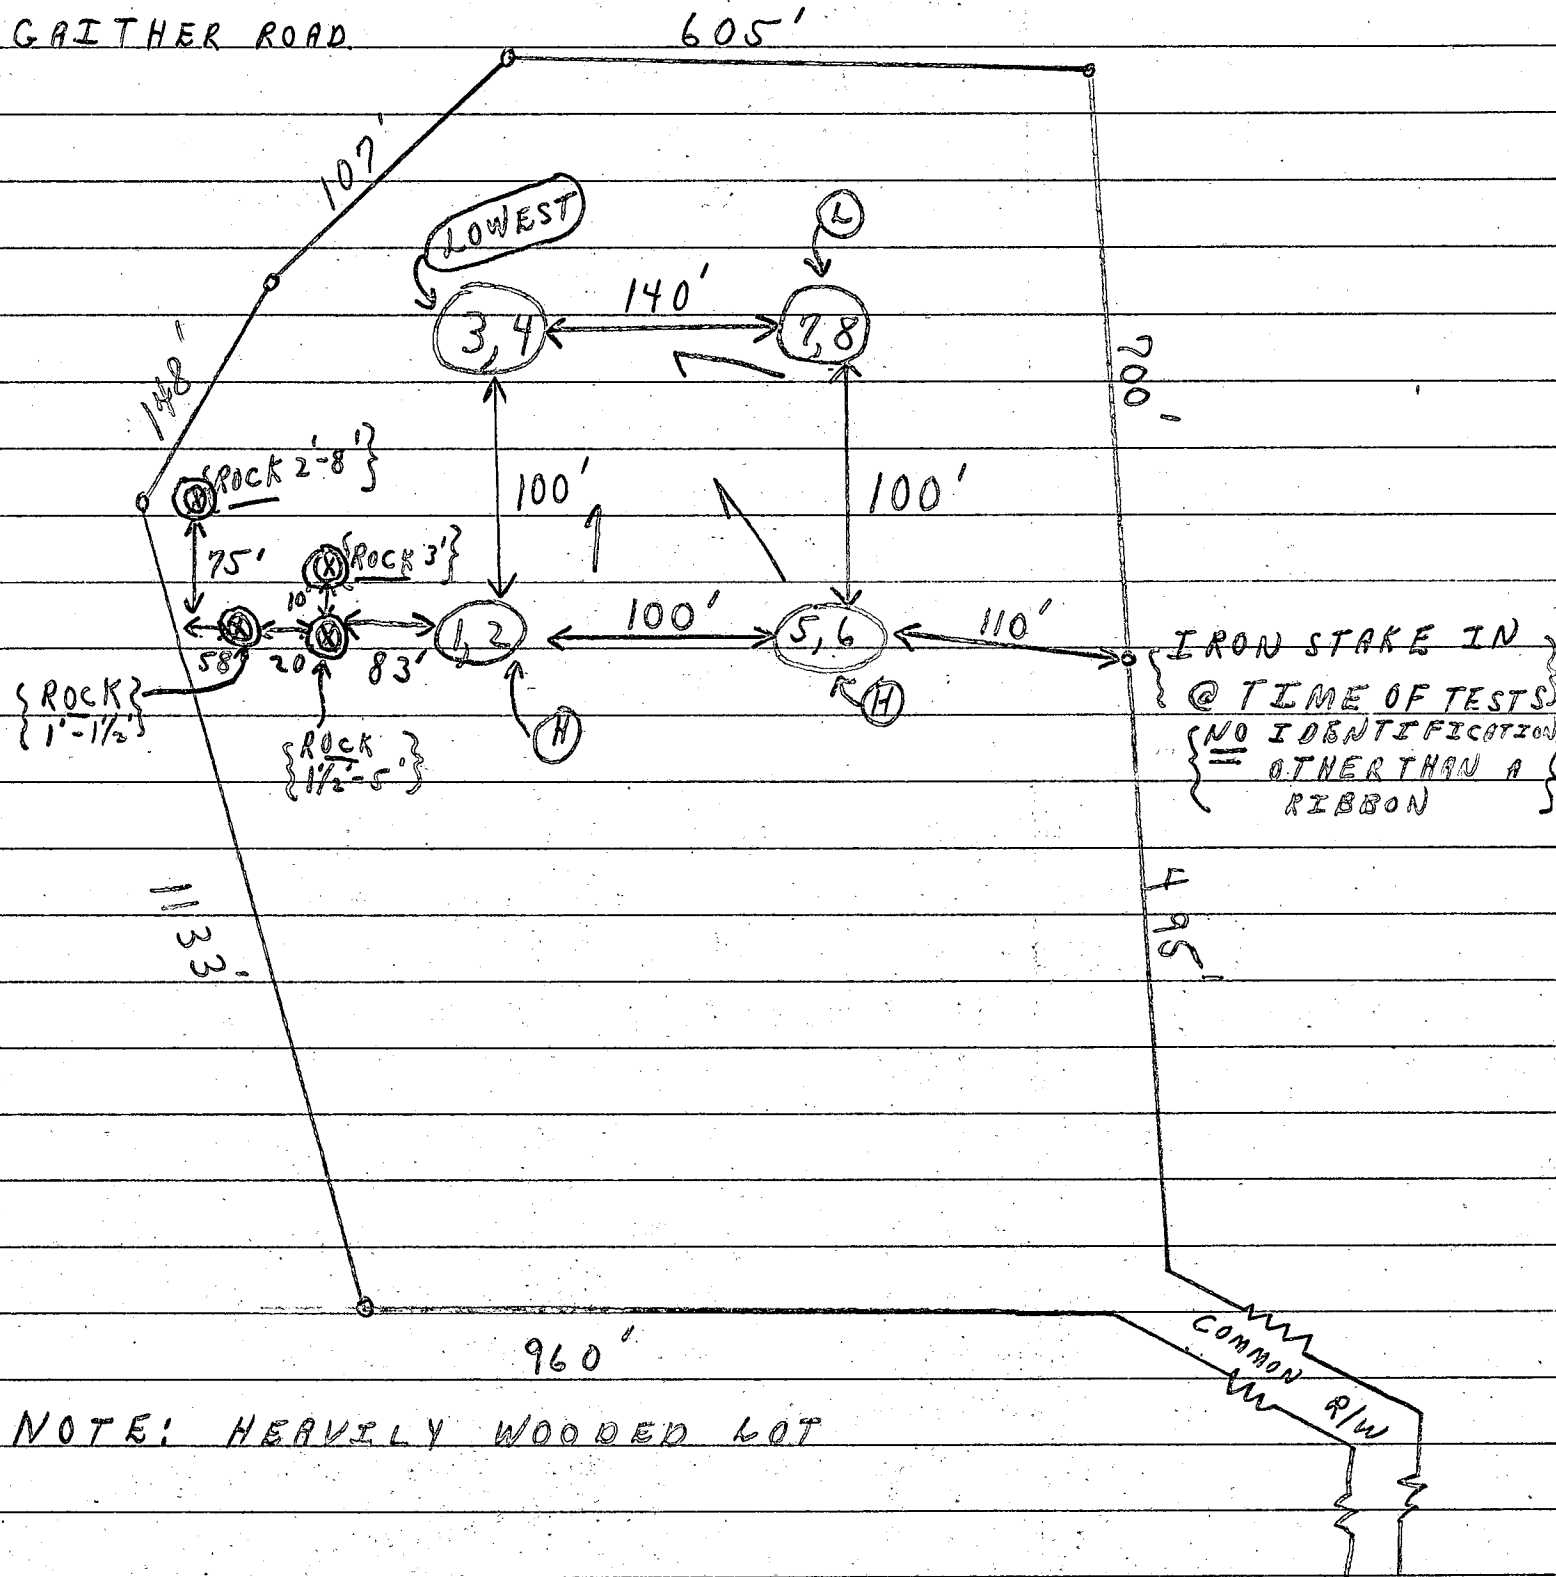 GAITHER ROAD
605'
107'
LOWEST
L
140'
3,4
7,8
148'
700'
{ROCK 2'-8'}
100'
100'
75'
{ROCK 3'}
10'
1,2
100'
5,6
110'
58'
20'
83'
{IRON STAKE IN
@ TIME OF TESTS}
{NO IDENTIFICATION
OTHER THAN A
RIBBON}
{ROCK
1'-1½'}
H
H
{ROCK
1½'-5'}
1133'
495'
960'
COMMON R/W
NOTE: HEAVILY WOODED LOT